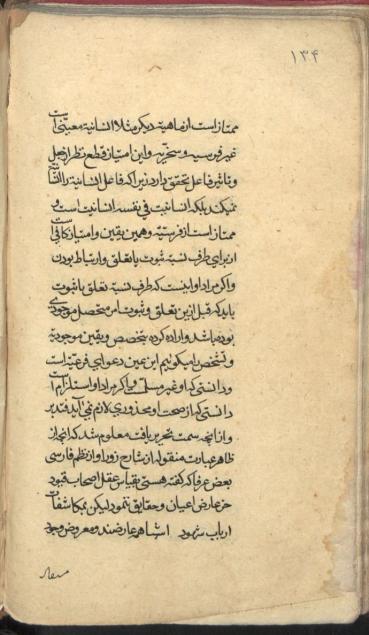 ۱۳۴
ممتاز است از ماهیة دیگر مثلا انسانیة معینی است
غیر فرسیه و سخریه و این امتیاز قطع نظر از جعل
و تاثیر فاعل تحقق دارد زیرا که فاعل انسانیة را انسانیة
نمیکند بلکه انسانیت فی نفسه انسانیت است و
ممتاز است از فرسیة و همین یقین و امتیاز کافی است
از برای طرف نسبة ثبوت یا تعلق و ارتباط بودن
و اگر مراد او اینست که طرف نسبة تعلق یا ثبوت
باید که قبل ازین تعلق و ثبوت امر متحصل موجودی
بوده باشد و اراده کرده بتخصص و یقین موجودیة
و تشخص را میگوئیم این عین دعوای فرعیة است
و دانستی که او غیر مسلمست و اگر مراد او استلزام است
دانستی که از صحت او محذوری لازم نمی آید فتدبر
و از آنچه سمت تحریر یافت معلوم شد که آنچه از
ظاهر عبارت منقوله از شارح زورا و از نظم فارسی
بعض عرفا که گفته هستی بقیاس عقل اصحاب قیود
جز عارض اعیان و حقایق ننمود لیکن بمکاشفات
ارباب شهود اشیا همه عارضند و معروض وجود